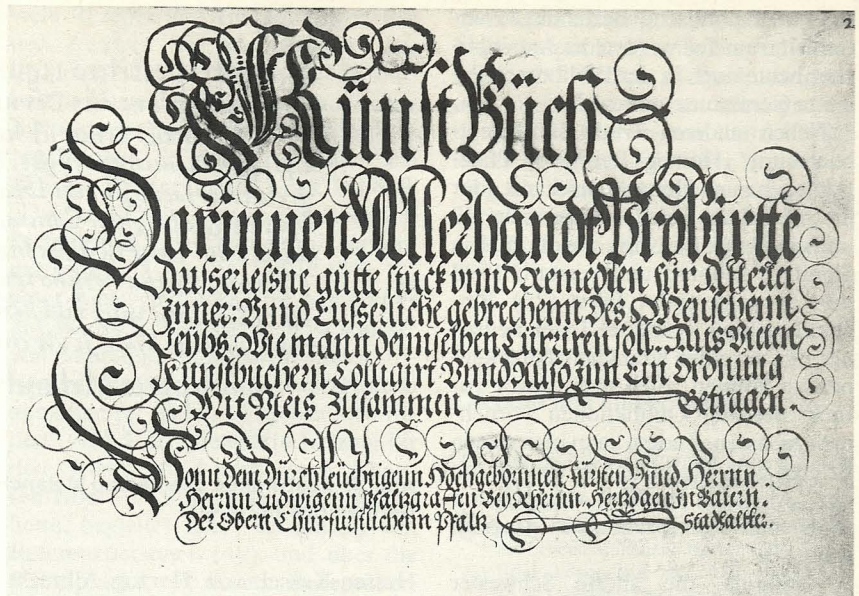 2
Künst Büch
Darinnen Allerhandt Probirtte
Ausserlessne gütte stück vnnd Remedien für Allerlei
Inner: Vnnd Eusserliche gebrechenn Des Menschenn
Leÿbs, Wie mann dennselben Cürriren soll. Aus Vielen
Kunstbuchern Colligirt Vnnd Allso Jnn Ein Ordnung
Mit Vleis Zusammen Getragen.
Vonn dem Dürchleüchtigenn Hochgebornnen Fürsten Vnnd Herrnn.
Herrnn Ludwigenn Pfaltzgraffen Beÿ Rheinn. Hertzogen Jn Baiern.
Der Obern Chürfürstlichenn Pfaltz Stadhallter.